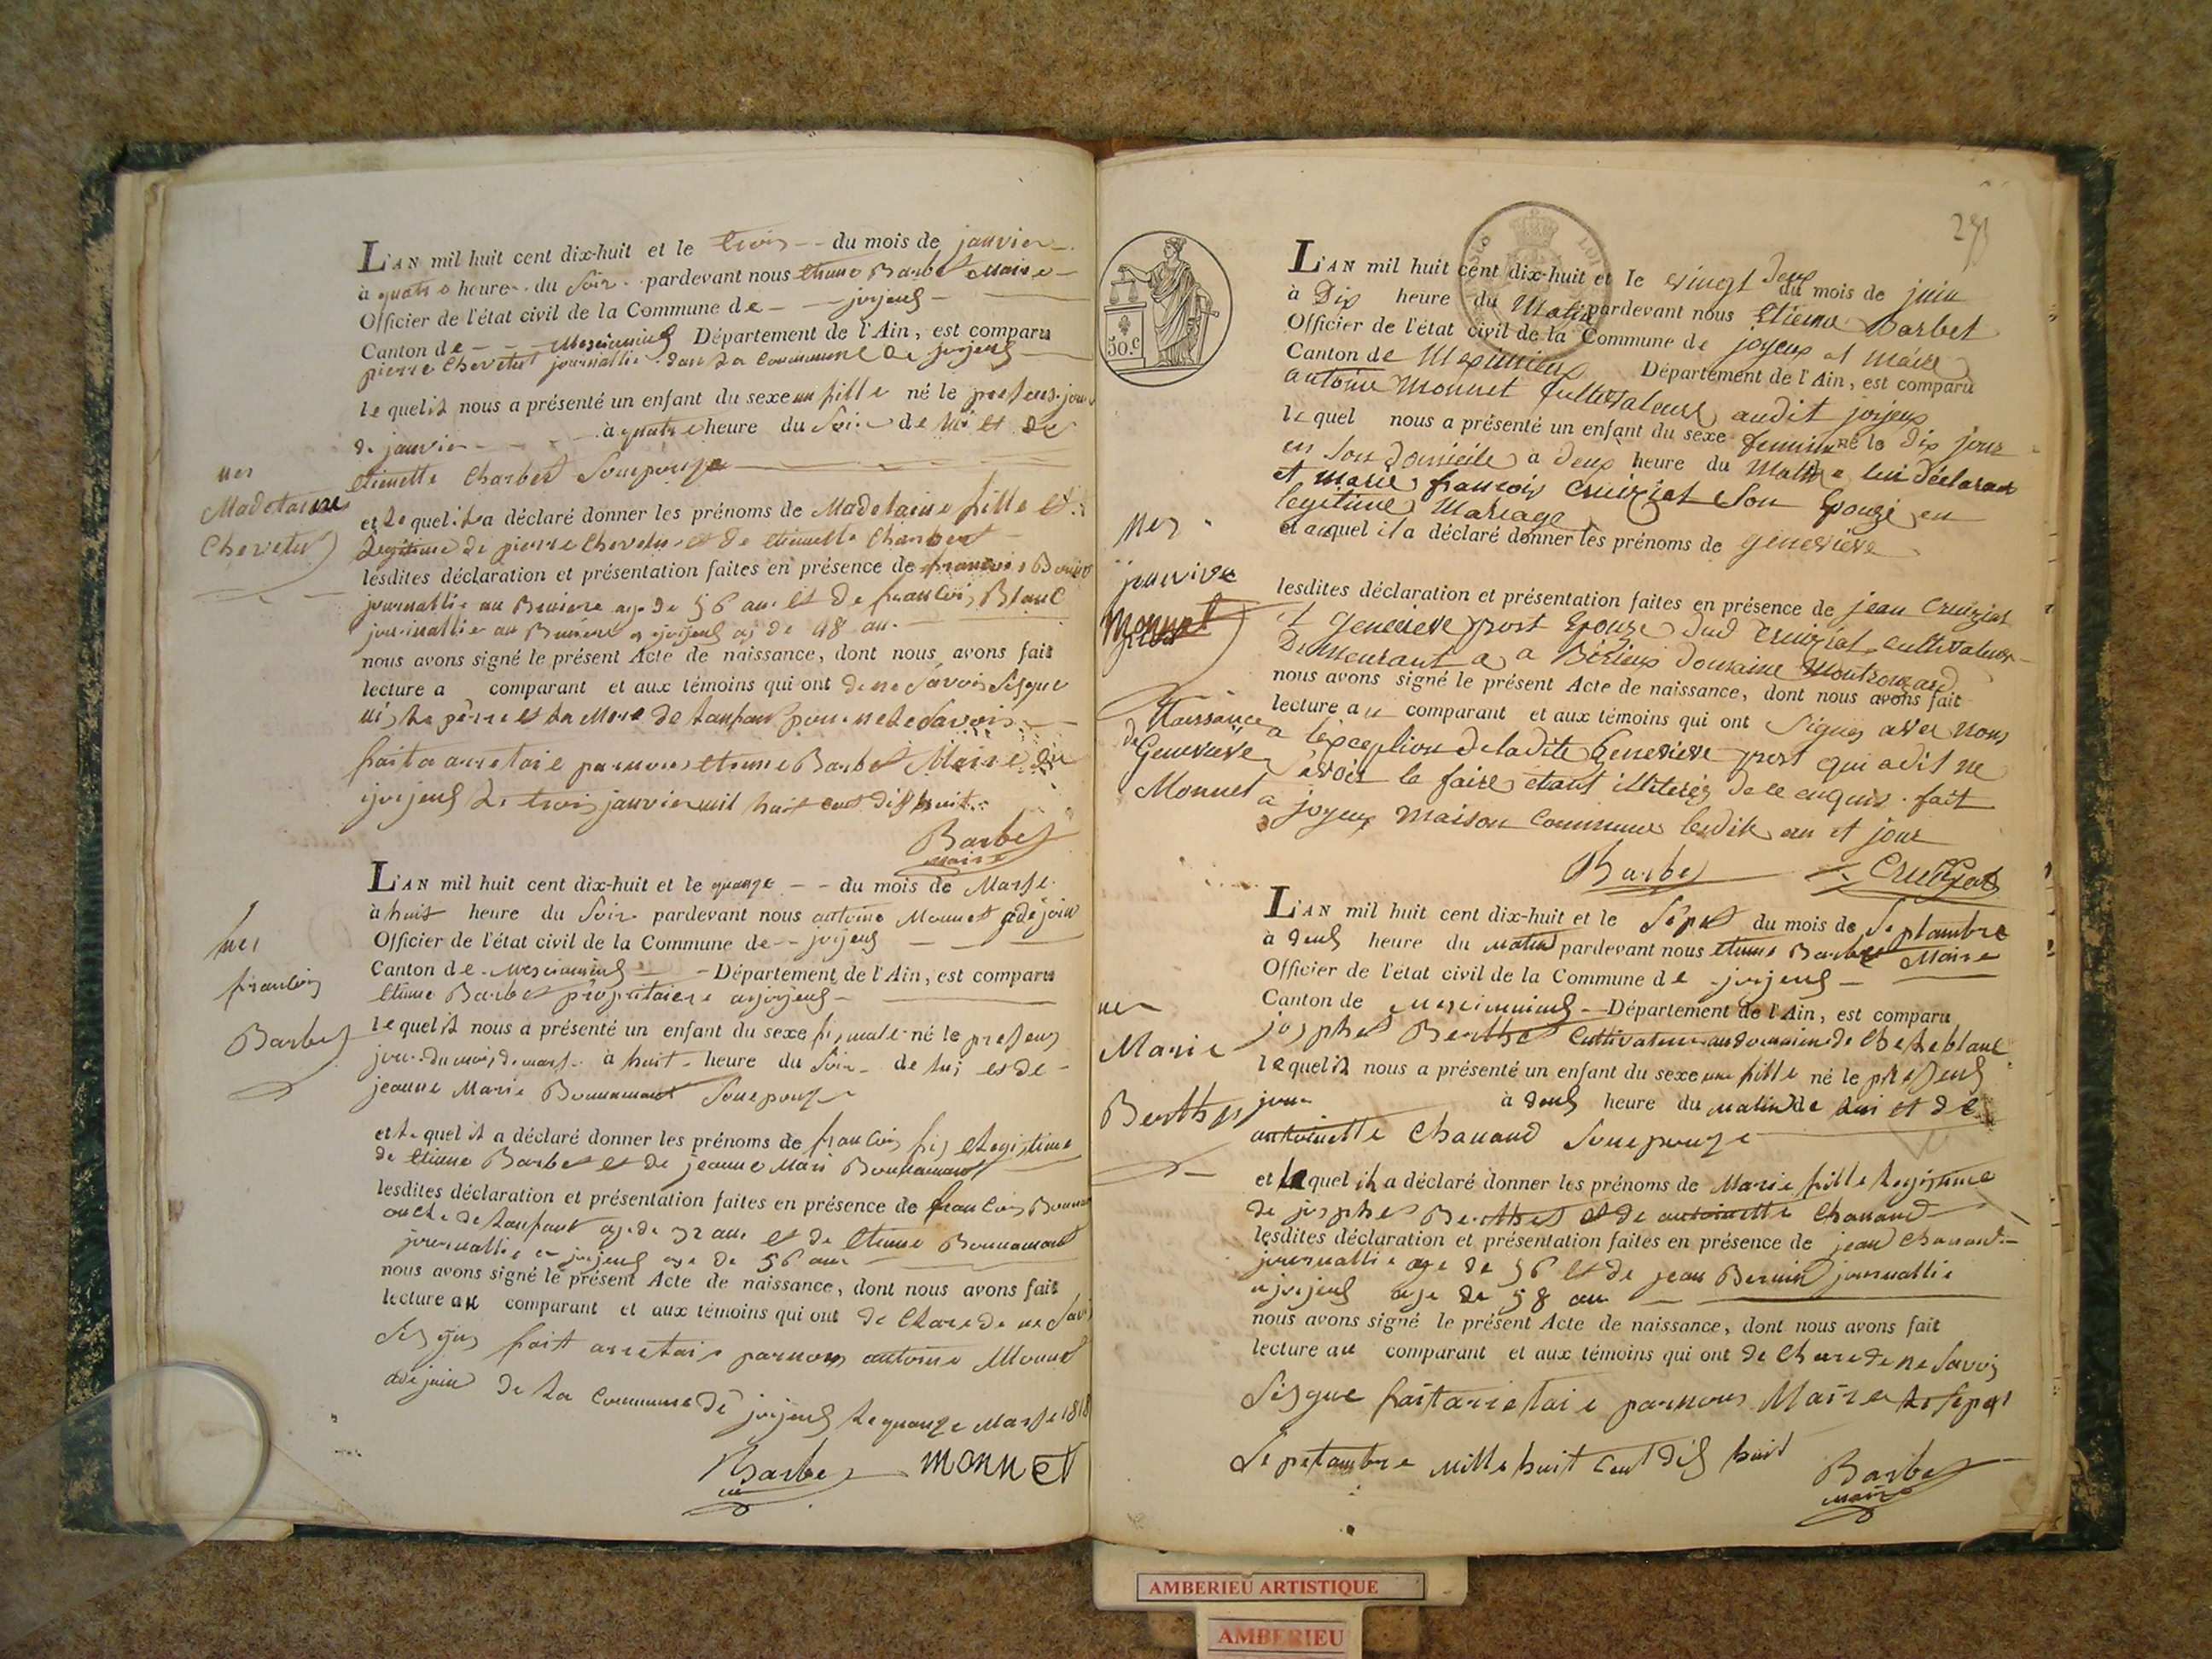 L'AN mil huit cent dix-huit et le trois du mois de janvier
à quatre heure du Soir pardevant nous etiene Barbet Maire
Officier de l'état civil de la Commune de joijeus
Canton de Département de l'Ain, est comparu
pierre Chevelu journallie dans La Commune de joijeus
le quel it nous a présenté un enfant du sexe un fille né le presens jour
de janvier à quatre heure du Soir de lui et de
etienette Charbet Son epouze
nes
Madelaine
Chevelu
et Le quel it a déclaré donner les prénoms de Madelaine fille et
Legitime de pierre Chevelu et de etienette Charbet
lesdites déclaration et présentation faites en présence de francois
journallie au age de 56 an et de francois Blanc
journallie au joijeus aj de 48 an
nous avons signé le présent Acte de naissance, dont nous avons fait
lecture a comparant et aux témoins qui ont de ne Savoir Signe
ni Le père et La Mere de Lanfant pour ne Le Savoir
fait a arretaie par nous etienne Barbet Maire de
joijeus Le trois janvier mil huit cent dix huit
Barbet
Maire
L'AN mil huit cent dix-huit et le quanze du mois de Marse
à huit heure du Soir pardevant nous antoine Monnet adejoin
Officier de l'état civil de la Commune de joijeus
Canton de Département de l'Ain, est comparu
etiene Barbet propritaire a joijeus
nes
francois
Barbet
le quel it nous a présenté un enfant du sexe né le presens
jour du mois de mars à huit heure du Soir de lui et de
jeanne Marie Bonnamant Son epouze
et Le quel it a déclaré donner les prénoms de francois fis et Legistime
de etiene Barbet et de jeanne Mari Bonnamant
lesdites déclaration et présentation faites en présence de francois
oncle de Lanfant age de 32 an et de etiene Bonnamant
journallie a joijeus age de 56 an
nous avons signé le présent Acte de naissance, dont nous avons fait
lecture au comparant et aux témoins qui ont de Clare de ne Savoi
Signe fait arretaie par nous antoine Monnet
adejoin de La Commune de joijeus Le quanze Marse 1818
Barbet Monnet
50.c
L'AN mil huit cent dix-huit et le vingt deux du mois de juin
à Dix heure du Matin pardevant nous Etienne Barbet
Officier de l'état civil de la Commune de joyeux et maire
Canton de Meximieux Département de l'Ain, est comparu
antoine Monnet Cultivateur audit joyeux
le quel nous a présenté un enfant du sexe feminin né le dix jour
en son domicile à deux heure du Matin de lui déclarant
et marie françois Cruiziat Son Epouze en
legitime Mariage
et auquel il a déclaré donner les prénoms de genevieve
nes
Monnet
lesdites déclaration et présentation faites en présence de jean Cruiziat
et Genevieve prost Epouze dud Cruiziat cultivateur
Demeurant a Birieux domaine
nous avons signé le présent Acte de naissance, dont nous avons fait
lecture au comparant et aux témoins qui ont Signés avec nous
a l'exception de ladite Genevieve prost qui a dit ne
savoir le faire etant de ce enquis. fait
a joyeux Maison Commune lesdits an et jour
Naissance
de Genevieve
Monnet
Barbet Cruiziat
L'AN mil huit cent dix-huit et le Sept du mois de Septambre
à deus heure du matin pardevant nous etiene Barbet Maire
Officier de l'état civil de la Commune de joijeus
Canton de Département de l'Ain, est comparu
josphet Berthet Cultivateur au domaine de
nes
Marie
Berthet
le quel it nous a présenté un enfant du sexe une fille né le presens
jour à deus heure du matin de Lui et de
antoinette Chanand Son epouze
et le quel it a déclaré donner les prénoms de Marie fille Legistime
de josphet Berthet et de antoinette Chanand
lesdites déclaration et présentation faites en présence de jean Chanand
journallie age de 56 et de jean journallie
a joijeus age de 58 an
nous avons signé le présent Acte de naissance, dont nous avons fait
lecture au comparant et aux témoins qui ont de Clare de ne Savoi
Signe fait arretaie par nous Maire Le Sept
Septambre mille huit cent dis huit
Barbet
Maire
AMBERIEU ARTISTIQUE
AMBERIEU